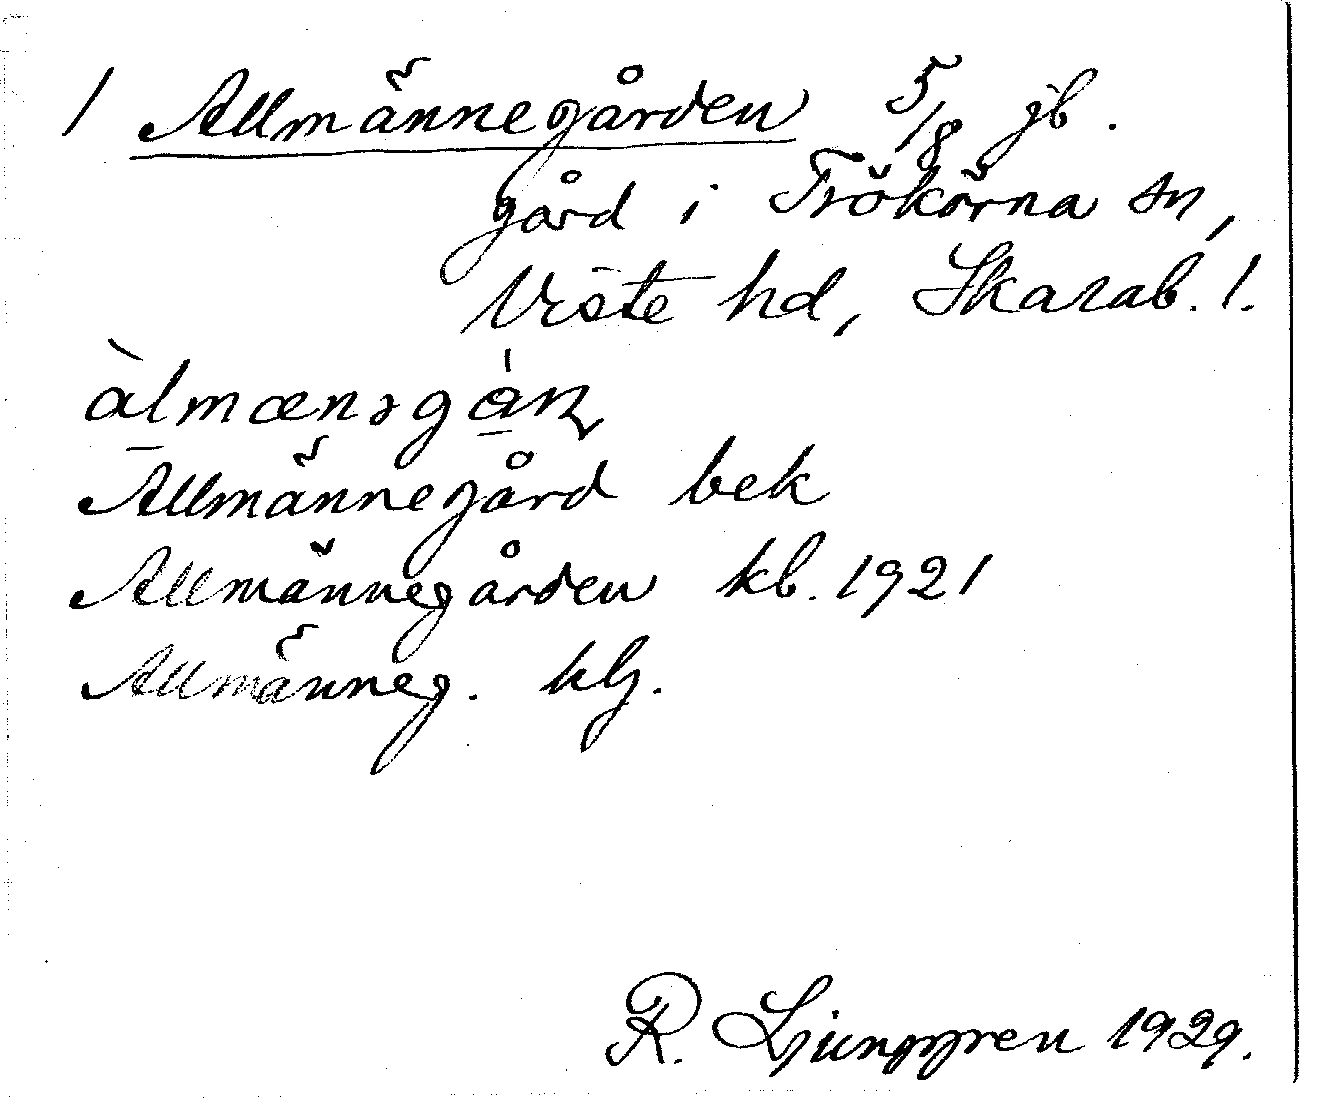 1 Allmännegården 5/8 jb.
gård i Trökörna sn,
Viste hd, Skarab. l.
Allmännegård bek
Allmännegården kb. 1921
Allmänneg. klj.
R. Ljunggren 1929.